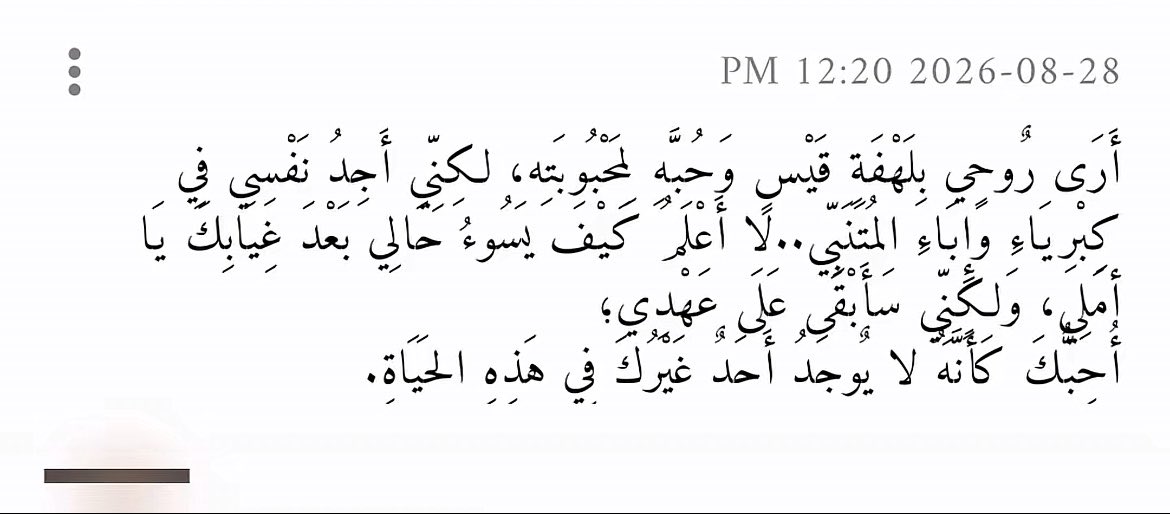 PM 12:20 2026-08-28
أَرَى رٌوحِي بِلَهْفَةِ قَيْسٍ وَحُبَّهِ لِمَحْبُوبَتِهِ، لكِنِّي أَجِدُ نَفْسِي فِي
كِبْرِيَاءِ وإِبَاءِ المُتَنَبِّي..لَا أَعْلَمُ كَيْفَ يَسُوءُ حَالِي بَعْدَ غِيَابِكَ يَا
أَمَلِي، وَلكِنِّي سَأَبْقَى عَلَى عَهْدِي؛
أُحِبُّكَ كَأَنَّهُ لا يٌوجَدُ أَحَدٌ غَيْرُكَ فِي هَذِهِ الحَيَاةِ.